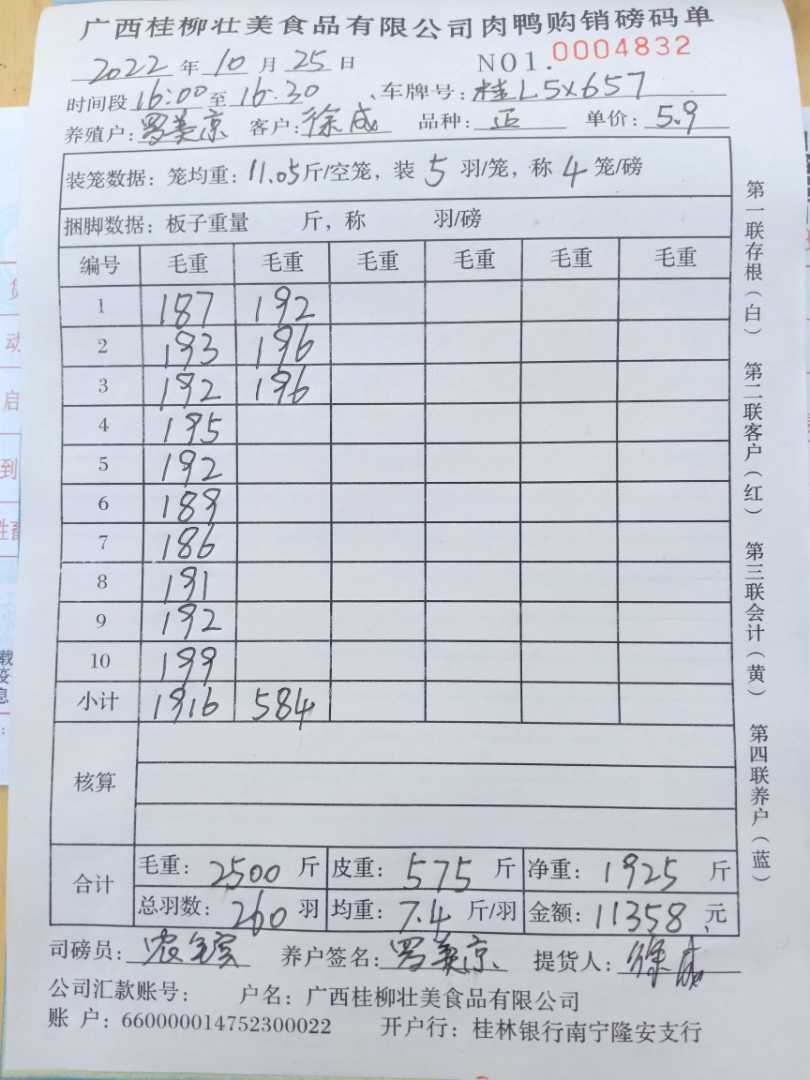 广西桂柳壮美食品有限公司肉鸭购销磅码单
2022 年 10 月 25 日 NO1. 0004832
时间段 16:00 至 16:20 、车牌号: 桂L5X657
养殖户: 罗美京 客户: 徐成 品种: 正 单价: 5.9
装笼数据: 笼均重: 11.05 斤/空笼, 装 5 羽/笼, 称 4 笼/磅
捆脚数据: 板子重量 斤, 称 羽/磅
编号 毛重 毛重 毛重 毛重 毛重 毛重
1 187 192
2 193 196
3 192 196
4 195
5 192
6 189
7 186
8 191
9 192
10 199
小计 1916 584
核算
合计
毛重: 2500 斤 皮重: 575 斤 净重: 1925 斤
总羽数: 260 羽 均重: 7.4 斤/羽 金额: 11358 元
司磅员: 农 宾 养户签名: 罗美京 提货人: 徐成
公司汇款账号: 户名: 广西桂柳壮美食品有限公司
账 户: 660000014752300022 开户行: 桂林银行南宁隆安支行
第一联存根(白) 第二联客户(红) 第三联会计(黄) 第四联养户(蓝)
动
启
到